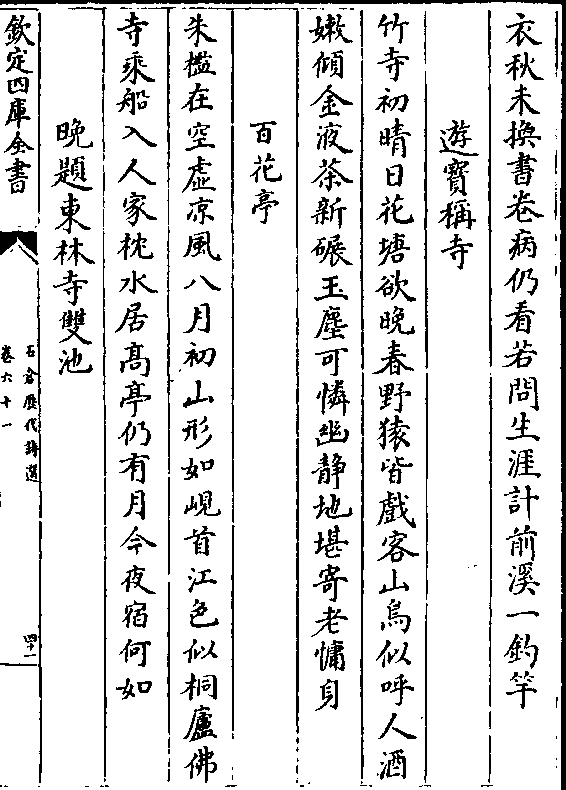 衣秋未換書卷病仍看若問生涯計前溪一釣竿
遊寳稱寺
竹寺初晴日花塘欲晚春野猿皆戲客山鳥似呼人酒
嫩傾金液茶新碾玉塵可憐幽静地堪寄老慵身
百花亭
朱檻在空虚凉風八月初山形如峴首江色似桐廬佛
寺乘船入人家枕水居髙亭仍有月今夜宿何如
晚題東林寺雙池
欽定四庫全書
石倉歴代詩選
卷六十一
四十一